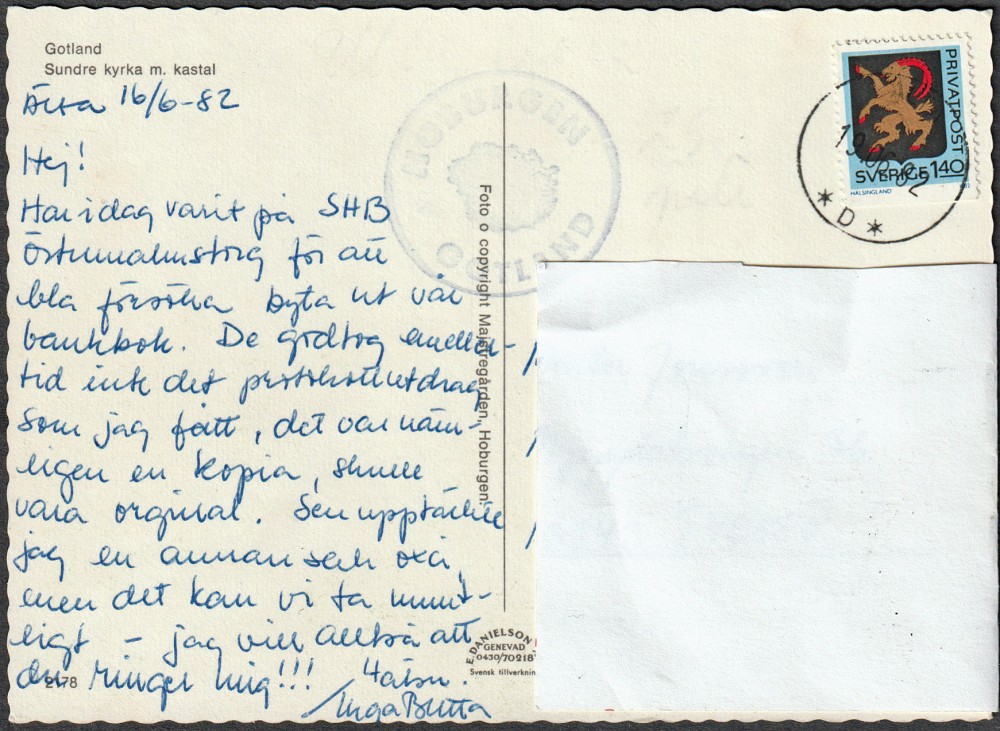 Gotland
Sundre kyrka m. kastal
Älta 16/6-82
Hej!
Har idag varit på SHB
Östermalmstorg för att
bla försöka byta ut vår
bankbok. De godtog emeller-
tid inte det protokollutdrag
som jag fått, det var näm-
ligen en kopia, skulle
vara orginal. Sen upptäckte
jag en annan sak oxå,
men det kan vi ta munt-
ligt – jag vill alltså att
du ringer mig!!! Hälsn.
/Inga Britta
2178
HOBURGEN
GOTLAND
Foto o copyright Majstregården, Hoburgen.
E. DANIELSON
GENEVAD
0430/70218
Svensk tillverkning
PRIVATPOST
SVERIGE 140
HÄLSINGLAND
19.06.82
* D *